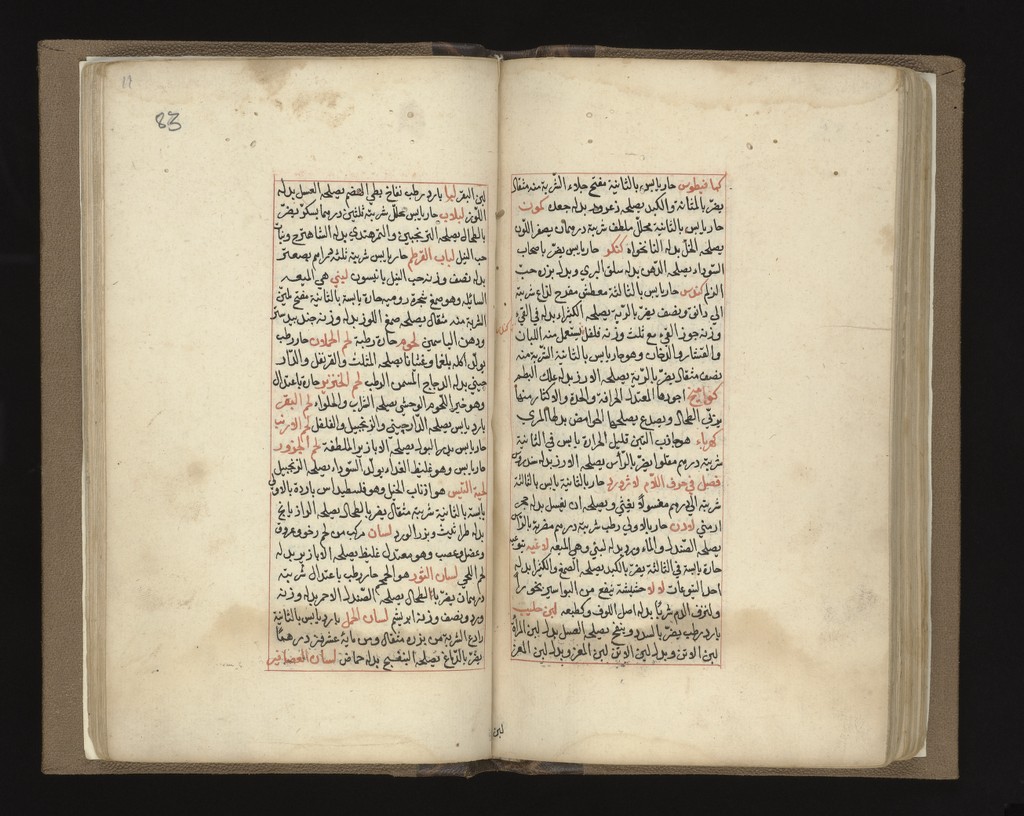 كمافيطوس حار يابس بالثانية مفتح جلاء الشربة منه مثقال
يضر بالمثانة والكبد يصلحه زعرور بدله جعده كمون
حار يابس بالثانية محلل ملطف شربته درهمان يصفر اللون
يصلحه الخل بدله النانخواه كنكر حار يابس يضر باصحاب
السوداء يصلحه الدهن بدله سلق البري وبدله بزره حب
الزلم كندس حار يابس بالثالثة معطش مفرح لذاع شربته
الى دانق ونصف يضر بالرية يصلحه الكثيراء بدله في القيء
وزنه جوز القيء مع ثلث وزنه فلفل يستعمل منه اللبان
والقشار والدخان وهو حار يابس بالثانية الشربة منه
نصف مثقال يضر بالرية يصلحه الارز بدله علك البطم
كواميخ اجودها المعتدل الحرافة والحدة والاكثار منها
يرقي الطحال ويصدع يصلحها الحوامض بدلها المري
كهرباء هو جاذب التبن قليل الحرارة يابس في الثانية
شربته درهم مقلوا يضر بالرأس يصلحه الارز بدله سندروس
فصل في حرف اللام لاژورد حار بالثانية يابس بالثالثة
شربته الى درهم مغسولا يغثي ويصلحه ان يغسل بدله حجر
ارمني لادن حار بالاولى رطب شربته درهم مضرته بالرأس
يصلحه الصندل والماء ورد بدله لبنى وهي الميعه لاغيه
حارة يابسة في الثالثة يضر بالكبد يصلحه الصمغ والكثيرا بدله
احد اليتوعات حشيشة ينفع من البواسير
ولنزف الدم شربا بدله اصل اللوف وكطبعه لبن حليب
بارد رطب يضر بالسدد وينفخ يصلحه العسل بدله لبن المرأة
لبن الاتن وبدله لبن الاتن لبن المعز وبدله لبن المعز
لبن
83
لبن البقر لبا بارد رطب نفاخ بطي الهضم يصلحه العسل بدله
اللوز لبلاب حار يابس محلل شربته ثلثين درهما بسكر يضر
بالطحال يصلحه الترنجبين والتمرهندي بدله الشاهترج وثلث
حب النيل لباب القرطم حار يابس شربته ثلثة دراهم يضر
بدله نصف وزنه حب النيل بانيسون لبنى هي الميعه
السائله وهو صمغ شجرة رومية حارة يابسة بالثانية مفتح ملين
الشربة منه مثقال يصلحه صمغ اللوز بدله وزنه جند بيدستر
ودهن الياسمين لحوم حارة رطبة لحم الحملان حار رطب
يولد اكله بلغما وغثيانا يصلحه المثلث والقرنفل والدار
صيني بدله الدجاج المسمن الرطب لحم الخنزير حارة باعتدال
وهو خير اللحوم الوحشي يصلحه الشراب والحلواء لحم البقر
بارد يابس يصلحه الدارصيني والزنجبيل والفلفل لحم الارنب
حار يابس يدر البول يصلحه الابازير الملطفة لحم الجزور
حار يابس وهو غليظ الغذاء يولد السوداء يصلحه الزنجبيل
لحية التيس هو اذناب الخيل وهو قسطيداس باردة بالاولى
يابسة بالثانية شربته مثقال يضر بالطحال يصلحه الرازيانج
بدله طراثيث وبزر الورد لسان مركب من لحم رخو وعروق
وعضل وعصب وهو معتدل غليظ يصلحه الابازير بدله
لحم اللحي لسان الثور هو الحمحم حار رطب باعتدال شربته
درهمان يضر بالطحال يصلحه الصندل الاحمر بدله وزنه
ورد ونصف وزنه ابريشم لسان الحمل بارد يابس بالثانية
رادع الشربة من بزره مثقال ومن مائه عشرين درهما
يضر بالدماغ يصلحه البنفسج بدله حماض لسان العصافير